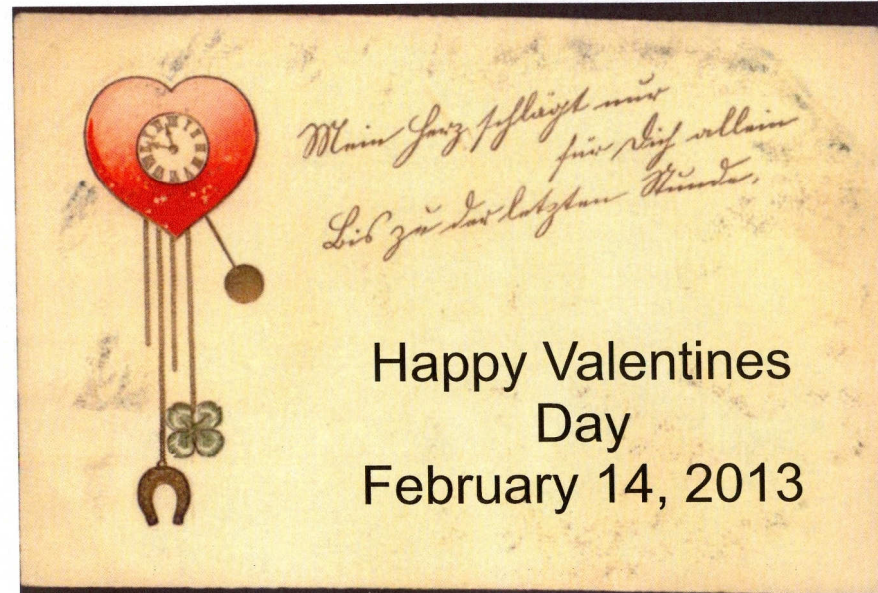 Mein Herz schlägt nur
für Dich allein
Bis zu der letzten Stunde.
Happy Valentines
Day
February 14, 2013